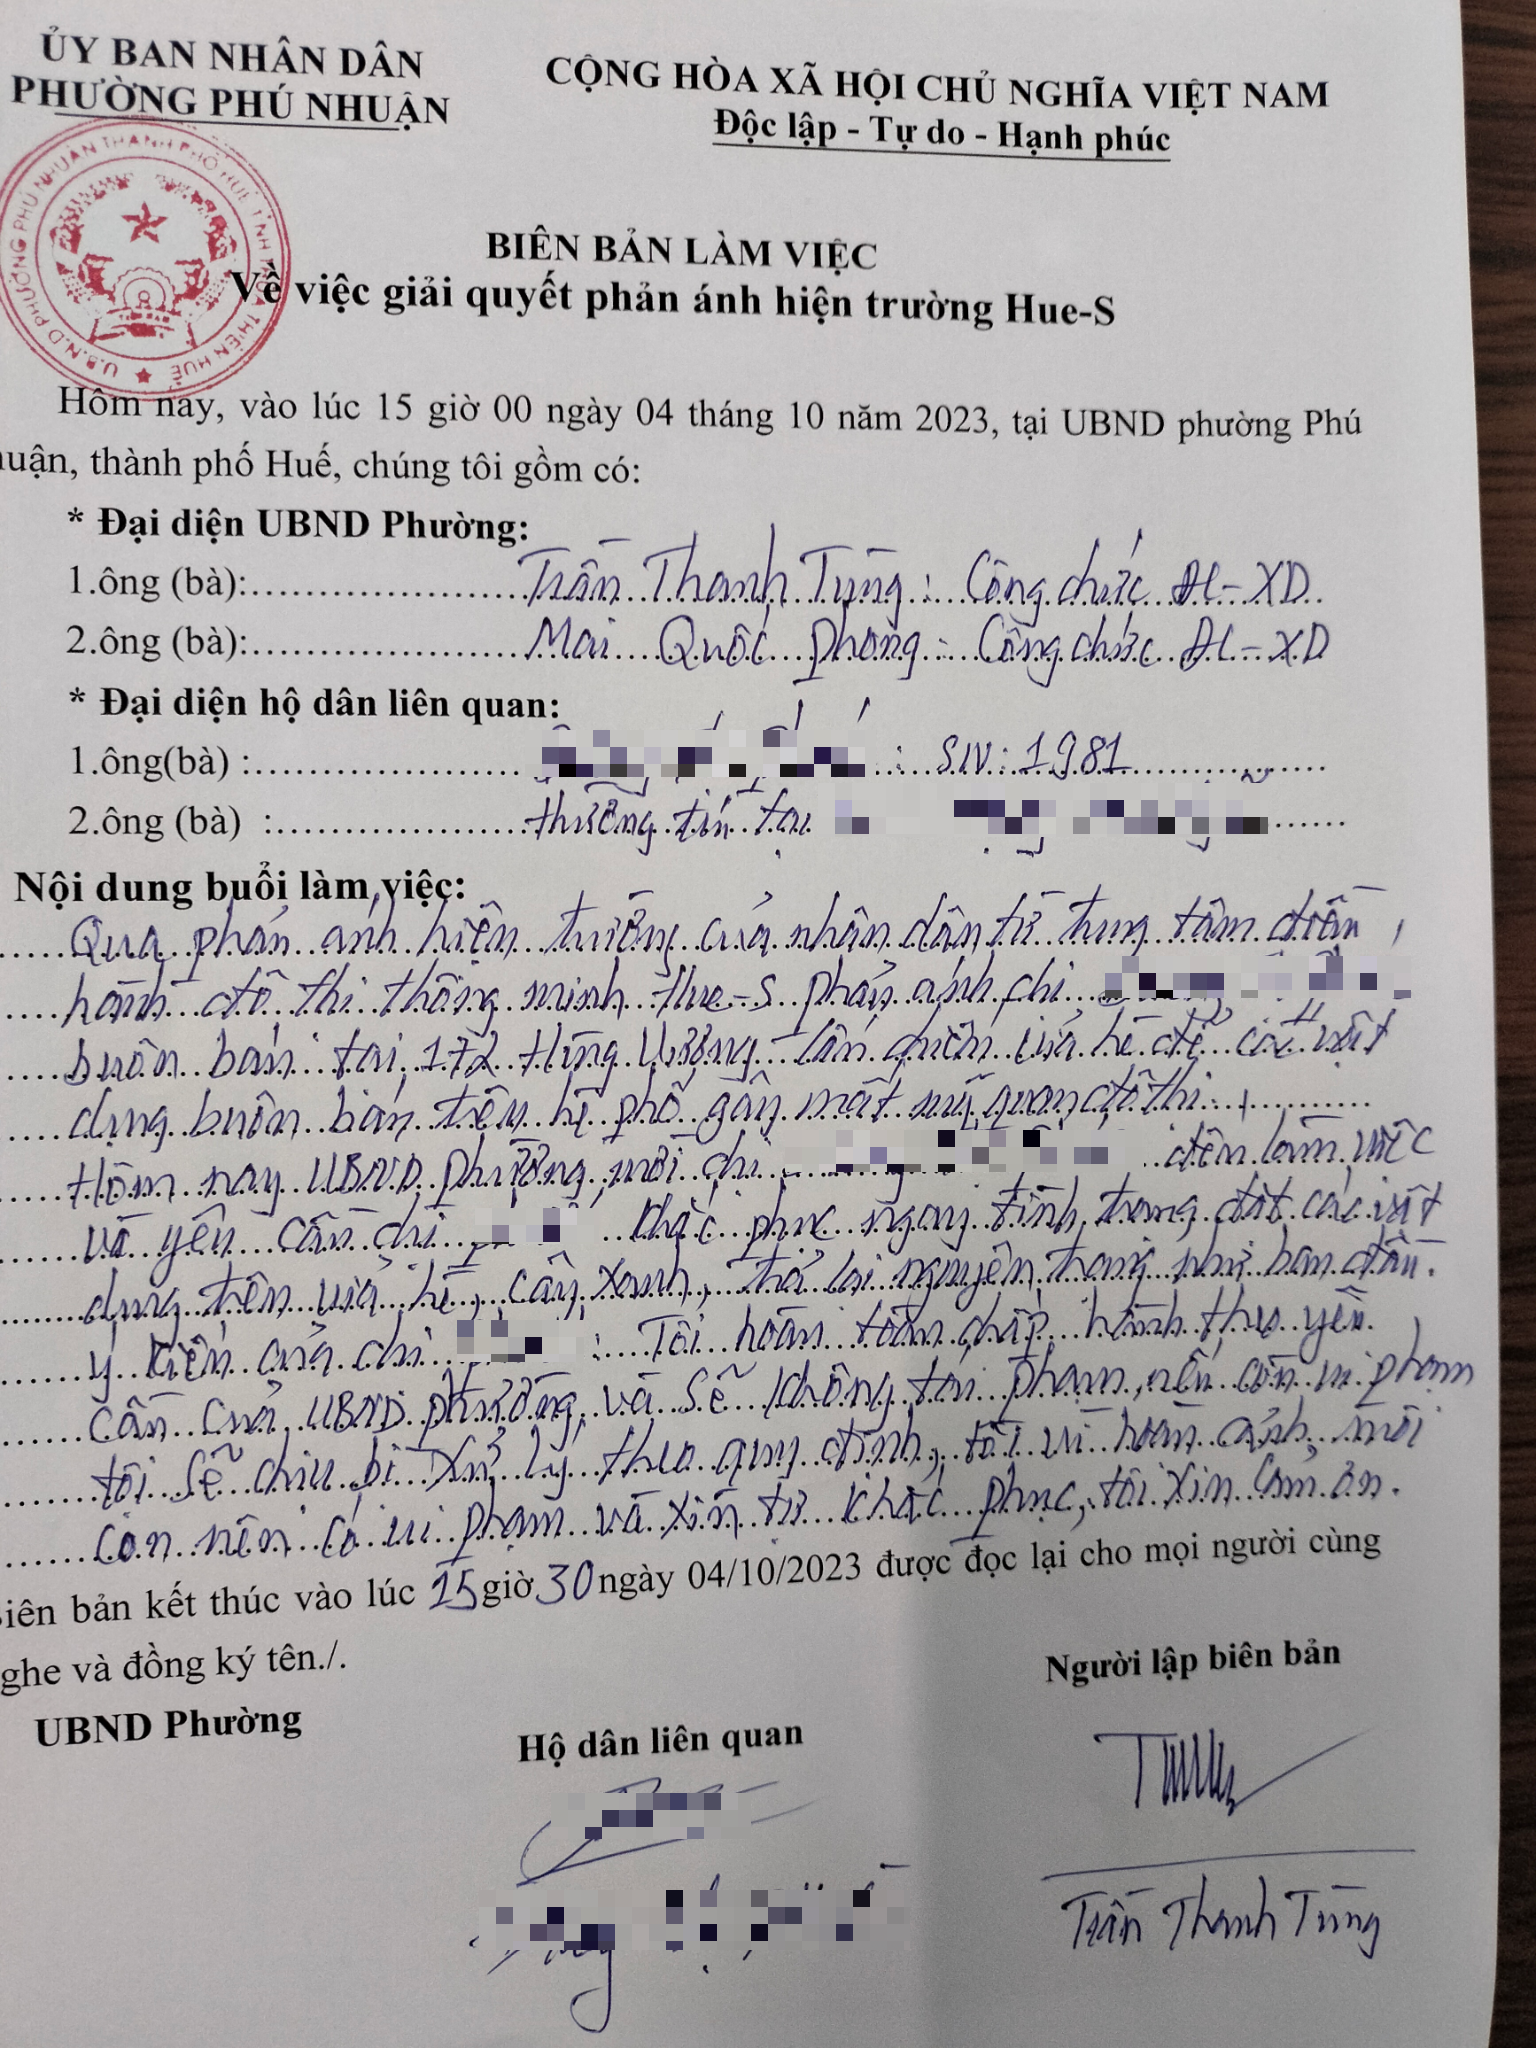 ỦY BAN NHÂN DÂN
PHƯỜNG PHÚ NHUẬN
CỘNG HÒA XÃ HỘI CHỦ NGHĨA VIỆT NAM
Độc lập - Tự do - Hạnh phúc
U.B.N.D PHƯỜNG PHÚ NHUẬN THÀNH PHỐ HUẾ TỈNH THỪA THIÊN HUẾ
BIÊN BẢN LÀM VIỆC
Về việc giải quyết phản ánh hiện trường Hue-S
Hôm nay, vào lúc 15 giờ 00 ngày 04 tháng 10 năm 2023, tại UBND phường Phú
uận, thành phố Huế, chúng tôi gồm có:
* Đại diện UBND Phường:
1.ông (bà): Trần Thanh Tùng : Công chức ĐC-XD
2.ông (bà): Mai Quốc Phong : Công chức ĐC-XD
* Đại diện hộ dân liên quan:
1.ông(bà) : : SN: 1981
2.ông (bà) : thường trú tại
Nội dung buổi làm việc:
Qua phản ánh hiện trường của nhân dân từ trung tâm điều
hành đô thị thông minh Hue-S phản ánh chị
buôn bán tại 172 Hùng Vương lấn chiếm vỉa hè để các vật
dụng buôn bán trên hè phố gây mất mỹ quan đô thị.
Hôm nay UBND phường mời chị đến làm việc
và yêu cầu chị khắc phục ngay tình trạng đặt các vật
dụng trên vỉa hè, cây xanh, trả lại nguyên trạng như ban đầu.
Ý kiến của chị : Tôi hoàn toàn chấp hành theo yêu
cầu của UBND phường và sẽ không tái phạm, nếu còn vi phạm
tôi sẽ chịu bị xử lý theo quy định, tôi vì hoàn cảnh nuôi
con nên có vi phạm và xin tự khắc phục, tôi xin cảm ơn.
iên bản kết thúc vào lúc 15 giờ 30 ngày 04/10/2023 được đọc lại cho mọi người cùng
ghe và đồng ký tên./.
UBND Phường
Hộ dân liên quan
Người lập biên bản
Trần Thanh Tùng